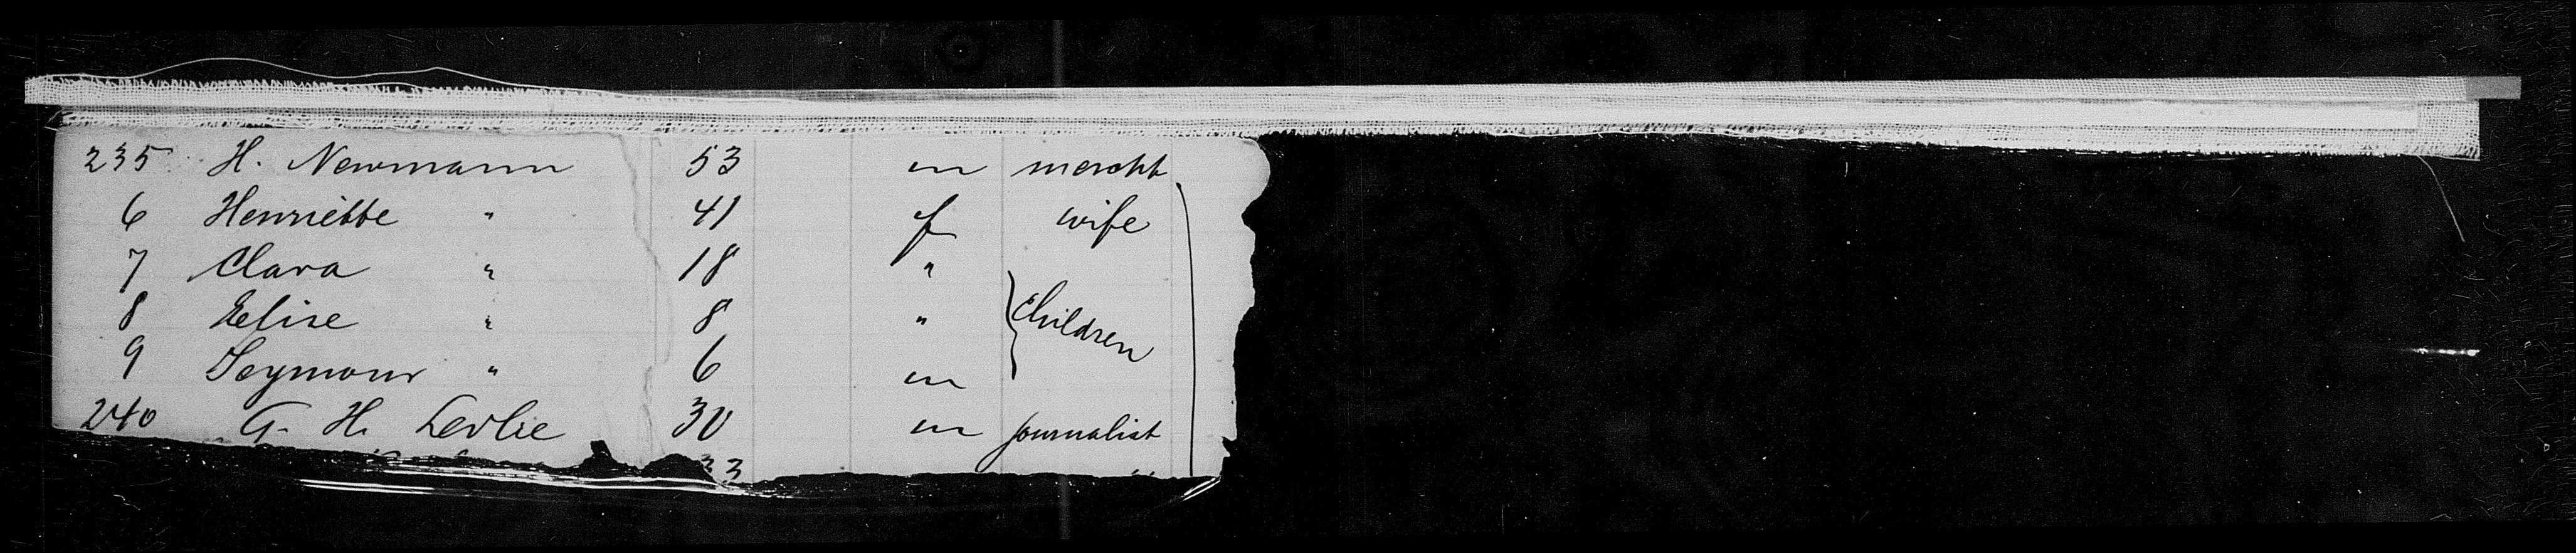 235 H. Newmann 53 m mercht
6 Henriette " 41 f wife
7 Clara " 18 "
8 Elise " 8 " } Children
9 Seymour " 6 m
240 G. H. Leslie 30 m journalist
33 "